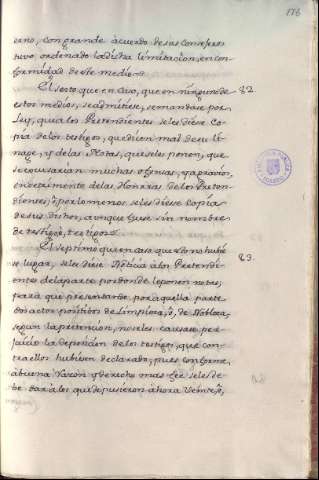 176
erno, con grande acuerdo de sus Consejeros
tuvo ordenado la dicha limitacion, en con
formidad de este medio.
El sesto que en caso, que en ninguno de
estos medios, se admitiese, se mandase por
Ley, que a los Pretendientes se les diese Co
pia de los testigos, que dicen mal de su li
nage, y de las Notas, que les ponen, que
se escusarian muchas ofensas, y agravios,
en detrimento de las Honrras de los Preten
dientes; ò por lo menos se les diese copia
de sus dichos, aunque fuese sin nombre
de testigos,
82.
El septimo que en caso que esto no hubie
se lugar, se les diese Noticia à los Pretendi
entes de la parte por donde le ponen notas,
para que presentando por aquella parte
dos actos positivos de Limpieza, ò, de Nobleza,
segun la pretencion, no se les causase per
juicio la deposicion de los testigos, que con
tra ellos hubiesen declarado, pues conforme
à buena razon y derecho mas fee se les de
be dar à los que depusieron ahora veinte, ò,
83.